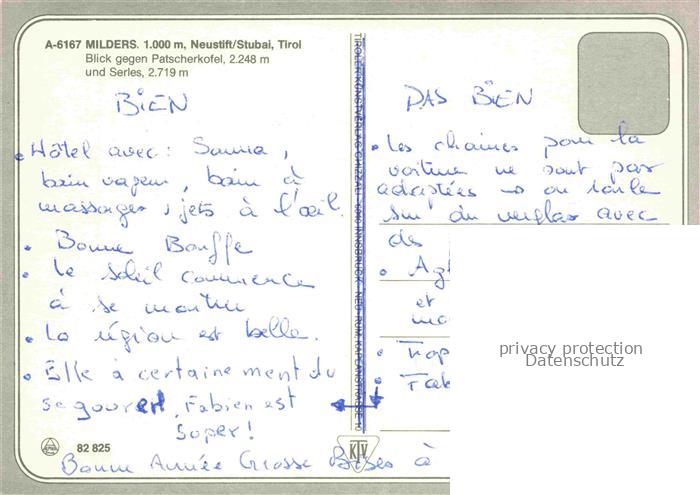 A-6167 MILDERS. 1.000 m, Neustift/Stubai, Tirol
Blick gegen Patscherkofel, 2.248 m
und Serles, 2.719 m
BIEN
• Hôtel avec : Sauna,
bain vapeur, bain à
massages, jets à l'œil.
• Bonne Bouffe
• Le soleil commence
à se montrer
• La région est belle.
• Elle a certainement du
se gourer, Fabien est
super!
82 825
TIROLER KUNSTVERLAG CHIZZALI · 6040 INNSBRUCK - NEU-RUM, KAPLANSTRASSE
KTV
PAS BIEN
• Les chaines pour la
voiture ne sont pas
adaptées → on roule
sur du verglas avec
des
•
et
•
•
Bonne Année Grosse Bises à
privacy protection
Datenschutz